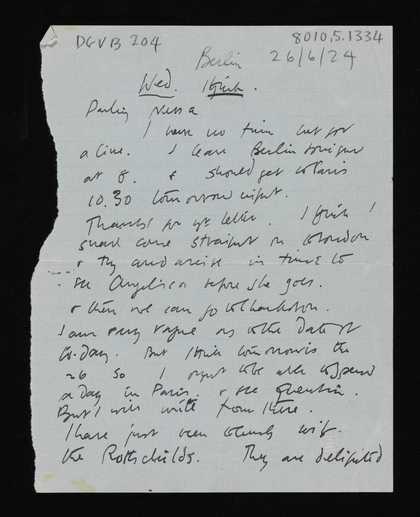 DGVB 204
8010.5.1334
Berlin
26/6/24
Wed. I think.
Darling Nessa
I have no time but for
a line. I leave Berlin tonight
at 8. & should get to Paris
10.30 tomorrow night.
Thanks for yr letter. I think I
shall come straight on to London
& try and arrive in time to
see Angelica before she goes.
& then we can go to Charleston.
I am very vague as to the date of
to-day. But I think tomorrow is the
26 so I ought to be able to spend
a day in Paris. & see Quentin.
But I will write from there.
I have just been to lunch with
the Rothschilds. They are delighted